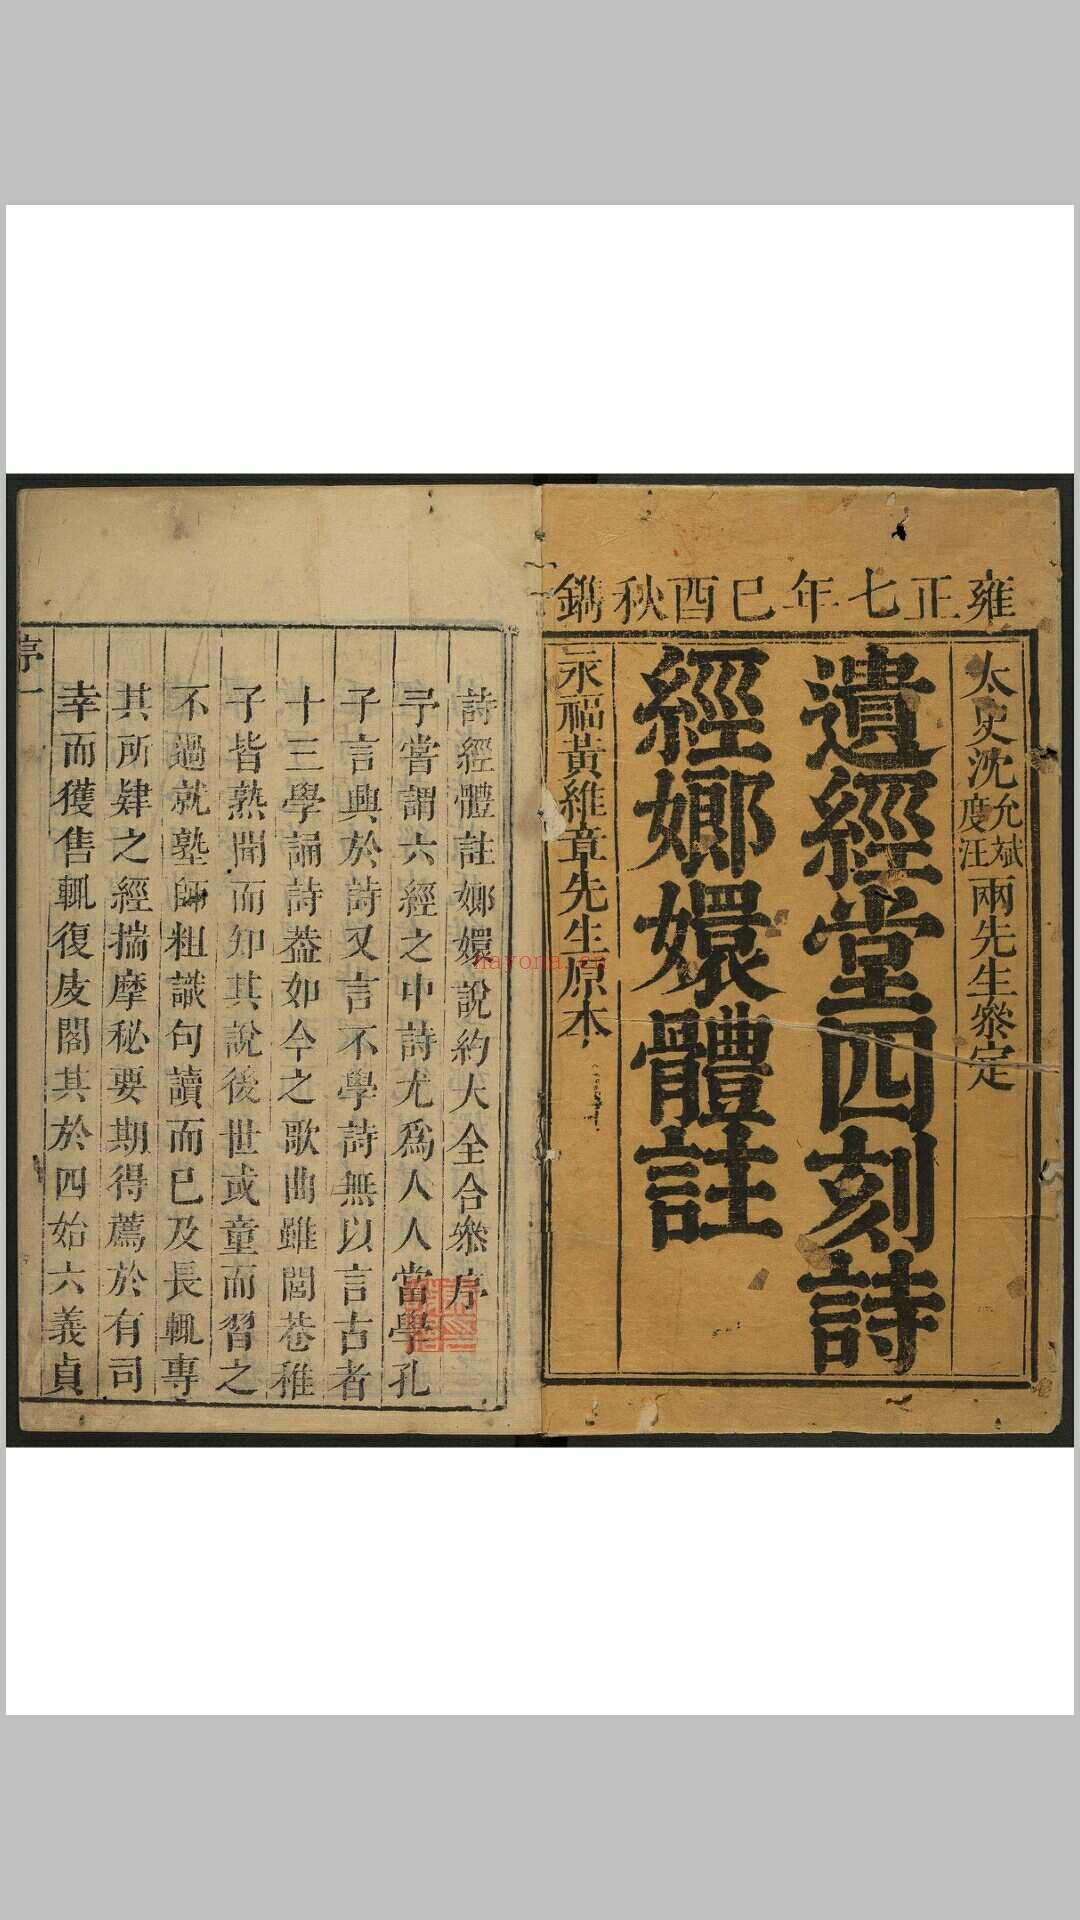 雍正七年巳酉秋鐫
太史沈允斌度汪兩先生叅定
遺經堂四刻詩
經嫏嬛體註
永福黃維章先生原本
詩經體註嫏嬛說約大全合叅序
予嘗謂六經之中詩尤爲人人當學孔
子言興於詩又言不學詩無以言古者
十三學誦詩葢如今之歌曲雖閭巷稚
子皆熟聞而知其說後世或童而習之
不過就塾師粗識句讀而已及長輒專
其所肄之經揣摩秘要期得薦於有司
幸而獲售輒復庋閣其於四始六義貞
序一
nayona.cn